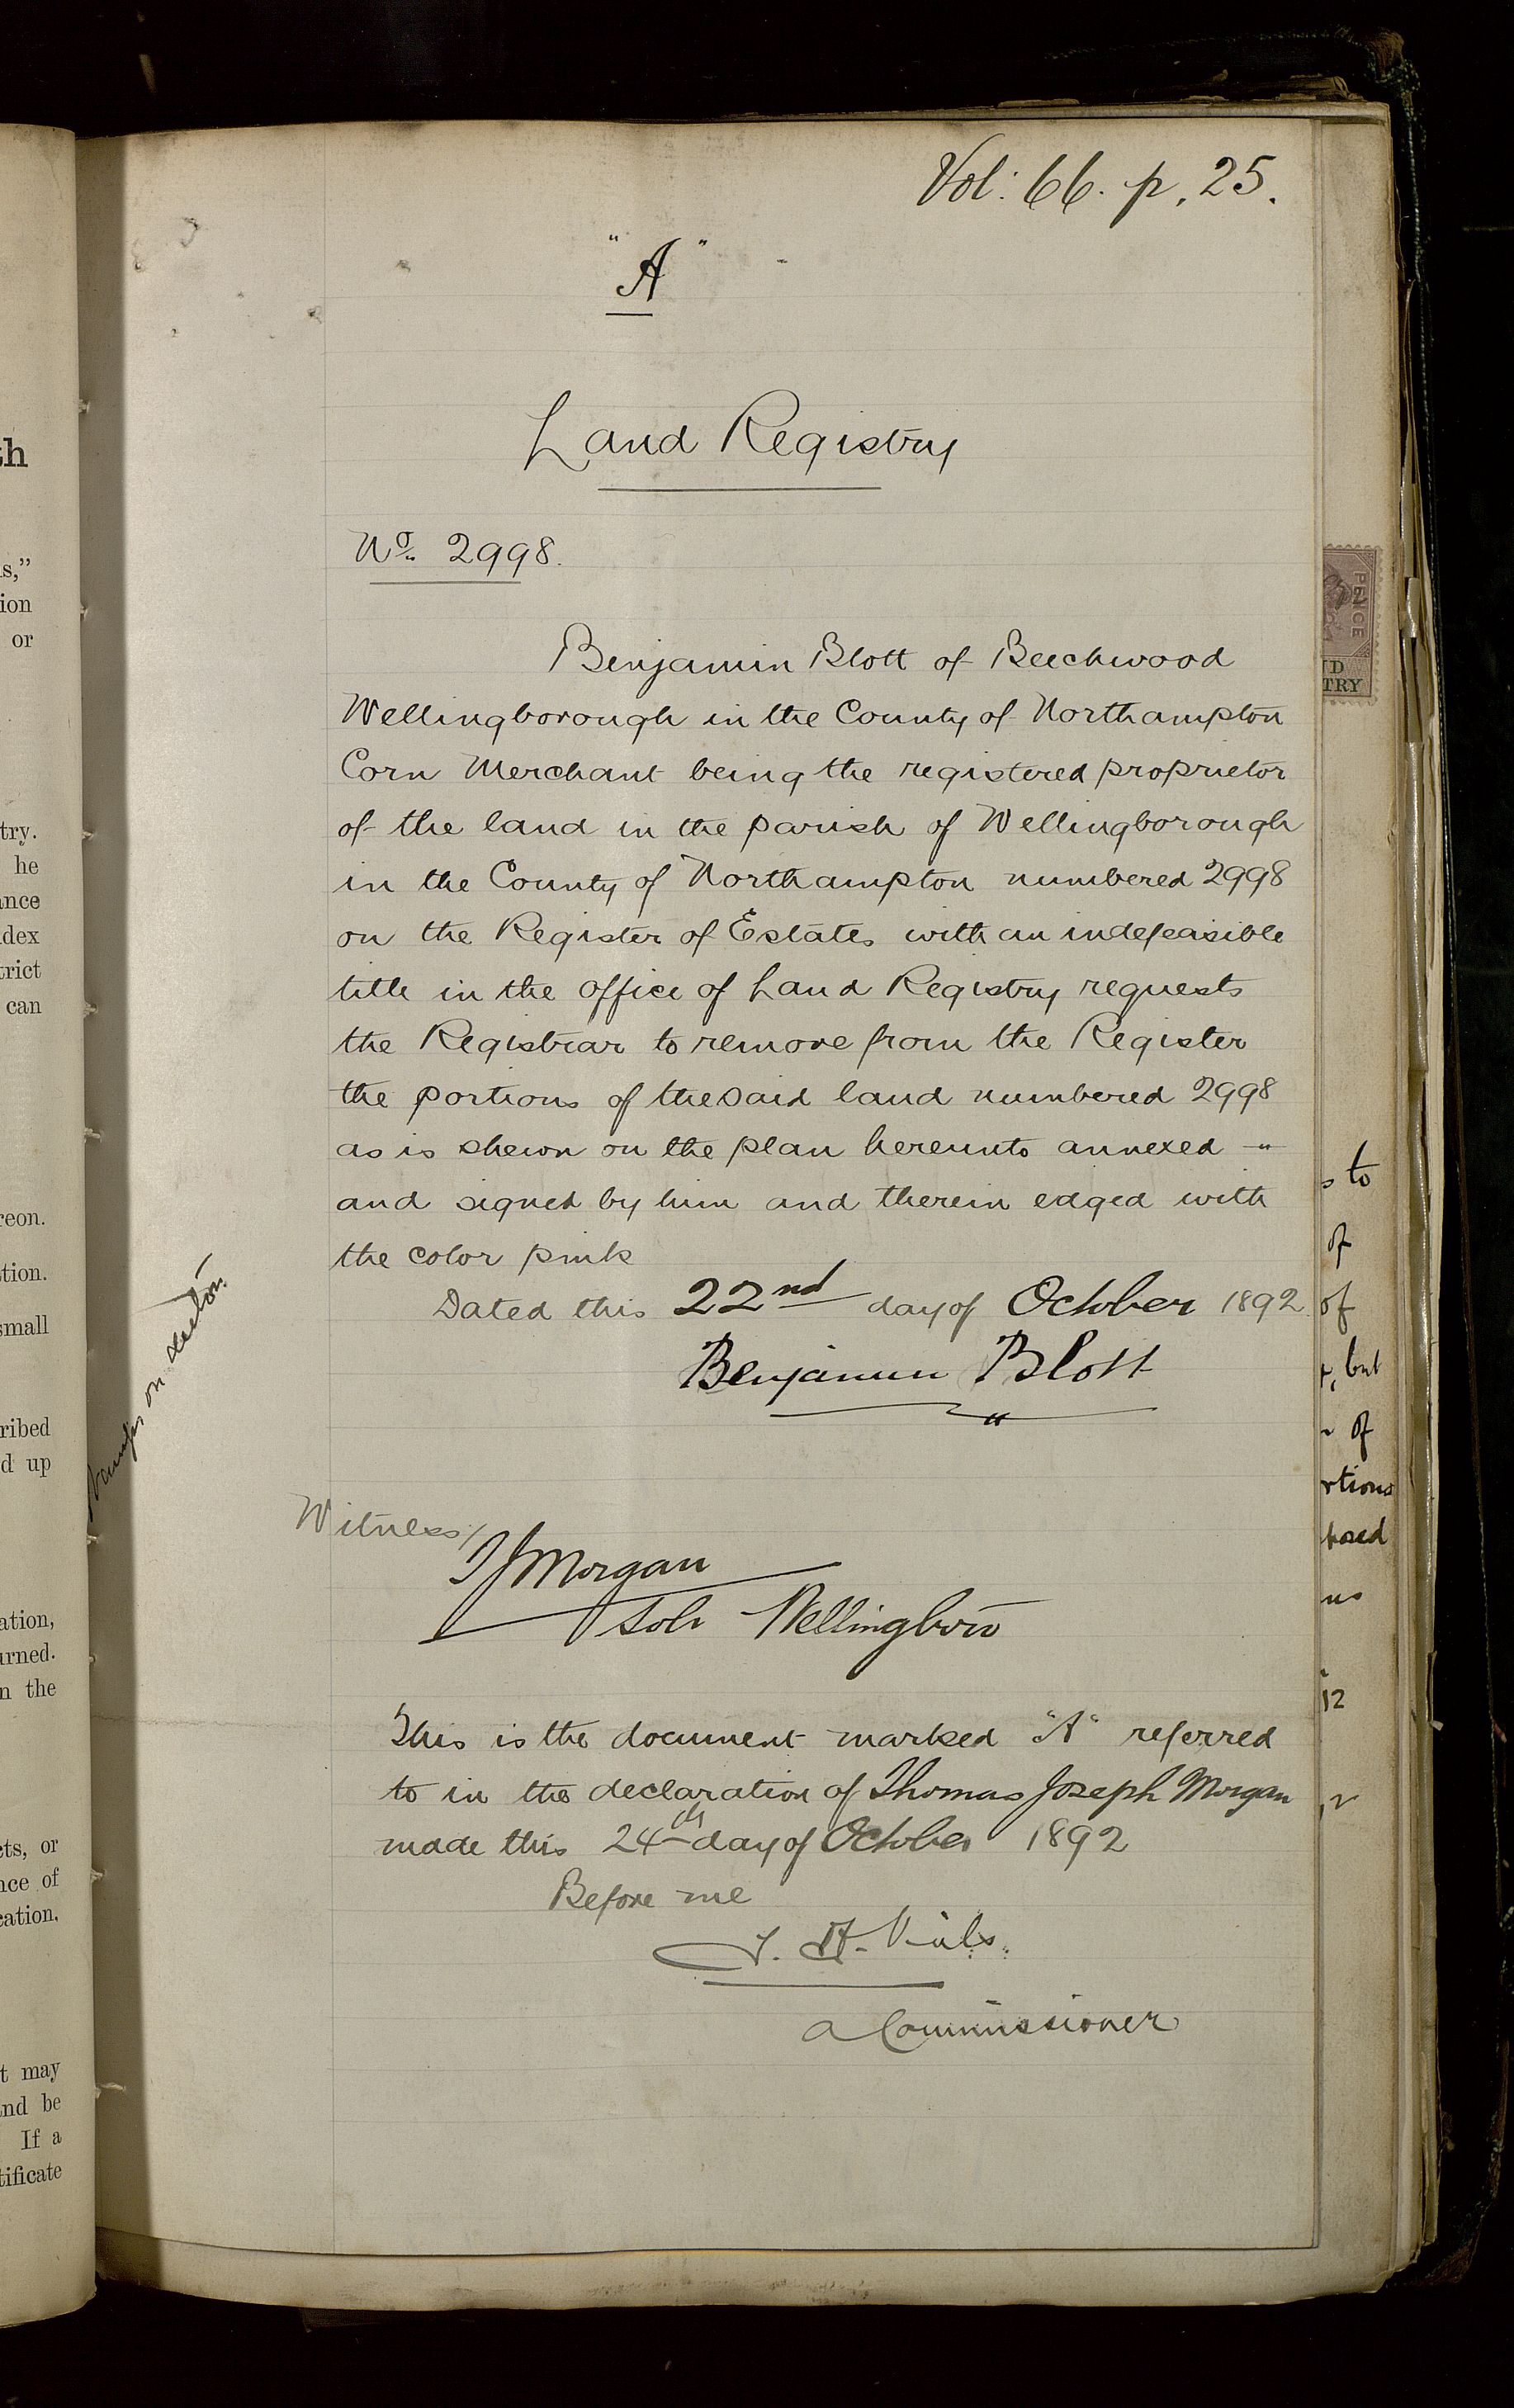 Vol: 66. p. 25.
"A"
Land Registry
No. 2998.
Benjamin Blott of Beechwood
Wellingborough in the County of Northampton
Corn Merchant being the registered proprietor
of the land in the parish of Wellingborough
in the County of Northampton numbered 2998
on the Register of Estates with an indefeasible
title in the office of Land Registry requests
the Registrar to remove from the Register
the portions of the said land numbered 2998
as is shewn on the plan hereunto annexed
and signed by him and therein edged with
the color pink
Dated this 22nd day of October 1892
Benjamin Blott
Witness/
T J Morgan
Solr Wellingboro
This is the document marked "A" referred
to in the declaration of Thomas Joseph Morgan
made this 24th day of October 1892
Before me
A Commissioner
th
s,"
ion
or
try.
he
ance
dex
trict
can
reon.
tion.
small
ribed
d up
ation,
urned.
n the
cts, or
nce of
cation.
t may
and be
If a
tificate
on
PENCE
ND
TRY
s to
of
of
, but
of
rtions
12